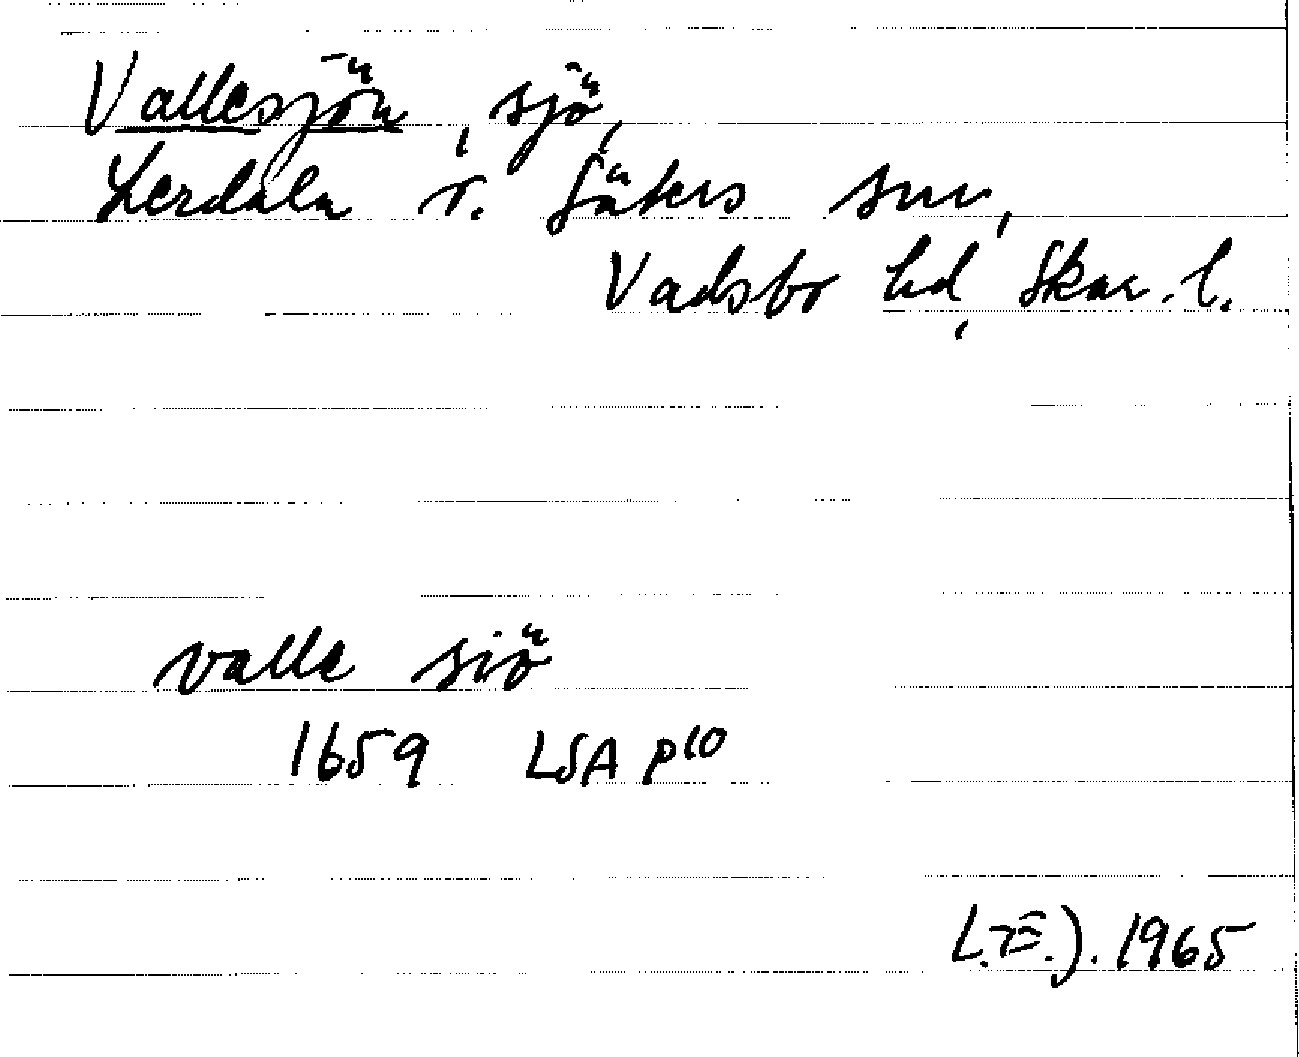 Vallesjön, sjö,
Lerdala o. Säters snr,
Vadsbo hd, Skar. l.
valle siö
1659 LSA P10
L.E.J. 1965